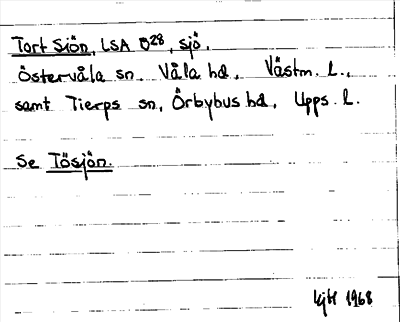 Tort Siön, LSA Ö28, sjö.
Östervåla sn. Våla hd., Västm. l.,
samt Tierps sn, Örbybus hd, Upps. l.
Se Tösjön.
1968